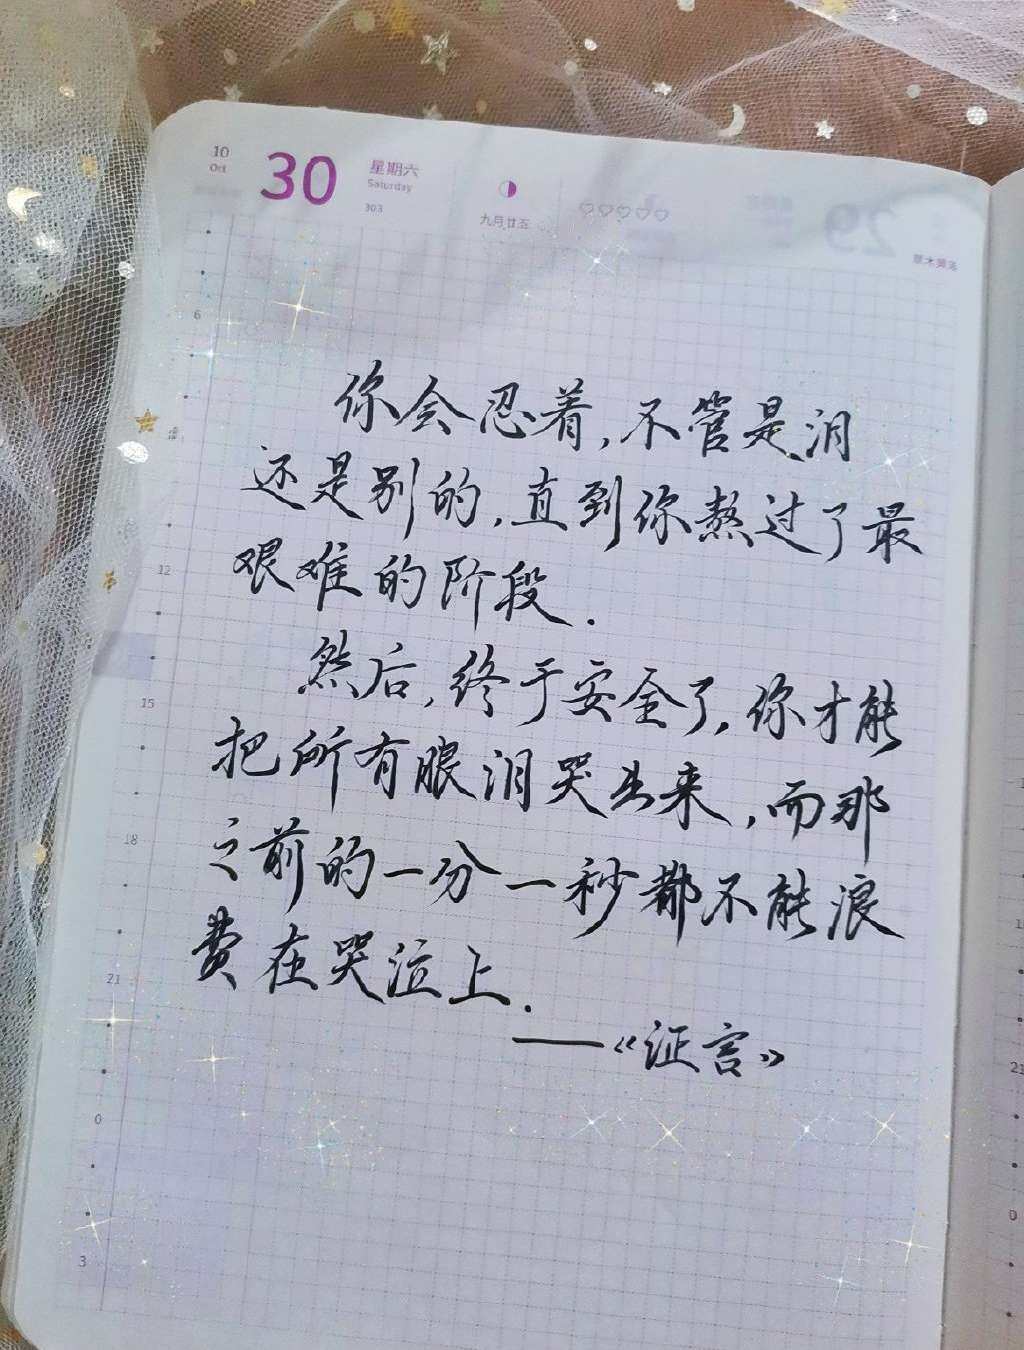 10
Oct
30
星期六
Saturday
303
九月廿五
29
草木黄落
6
12
15
18
21
0
3
你会忍着,不管是泪
还是别的,直到你熬过了最
艰难的阶段.
然后,终于安全了,你才能
把所有眼泪哭出来,而那
之前的一分一秒都不能浪
费在哭泣上.
——《证言》
21
0